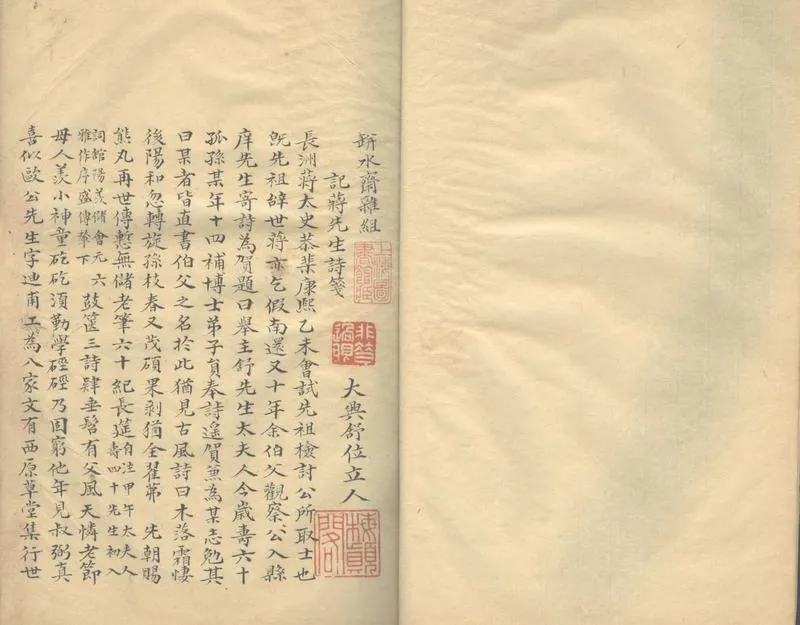 缾水齋雜組
記蔣先生詩箋
大興舒位立人
長洲蔣太史恭棐康熙乙未會試先祖檢討公所取士也
旣先祖辭世蔣亦乞假南還又十年余伯父觀察公入縣
庠先生寄詩為賀題曰舉主舒先生太夫人今歲壽六十
孤孫某年十四補博士弟子員奉詩遙賀兼為某志勉其
曰某者皆直書伯父之名於此猶見古風詩曰木落霜悽
後陽和忽轉旋孫枝春又茂碩果剥猶全翟茀 先朝賜
熊丸再世傳慙無儲老筆六十紀長筵自注甲午太夫人壽四十先生初入
詞館陽羡儲會元六雅作序盛傳輦下 鼓篋三詩肄垂髫有父風天憐老節
母人羨小神童矻矻須勤學硜硜乃固窮他年見叔弼真
喜似歐公先生字迪甫工為八家文有西原草堂集行世